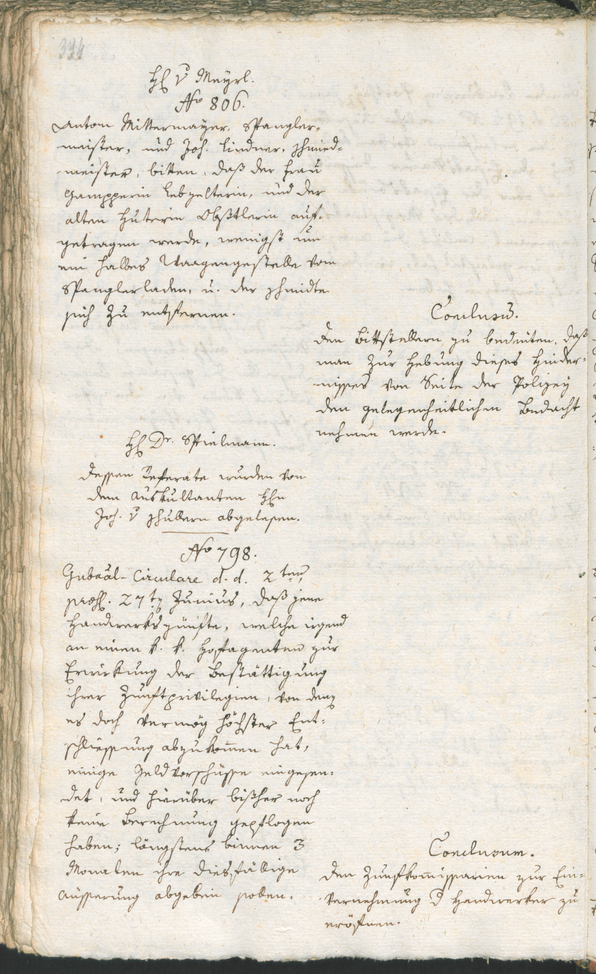 394
H: v Mayrl.
No 806.
Anton Mittermayer, Spangler-
meister, und Joh. Lindner, Schmied-
meister, bitten, daß der Frau
Gampperin Lebzelterin, und der
alten Huterin Obstlerin auf-
getragen werde, wenigst um
ein halbes Waagengestelle vom
Spanglerladen, u. der Schmidte
sich zu entfernen.
Conclusũ.
den Bittstellern zu bedeuten, daß
man zur Hebung dieses Hinder-
nisses von Seite der Polizey
den gelegenheitlichen Bedacht
nehmen werde.
H: Dr. Spielmann.
dessen Referate wurden von
dem Auskultanten Hrn
Joh. v abgelesen.
No 798.
Gubeal-Circulare d. d. 2ten
præs. 27ten Junius, daß jene
Handwerkszünfte, welche irgend
an einen k. k. Hofagenten zur
Erwirkung der Bestättigung
ihrer Zunftprivilegien, von deme
es doch vermög höchster Ent-
schliessung abzukom̅en hat,
einige Geldvorschüsse eingesen-
det, und hierüber bisher noch
keine Berechnung gepflogen
haben; längstens binnen 3
Monaten ihre diesfällige
Äusserung abgeben sollen.
Conclusum.
den Zunftkomissarien zur Ein-
vernehmung d Handwerker zu
eröffnen.